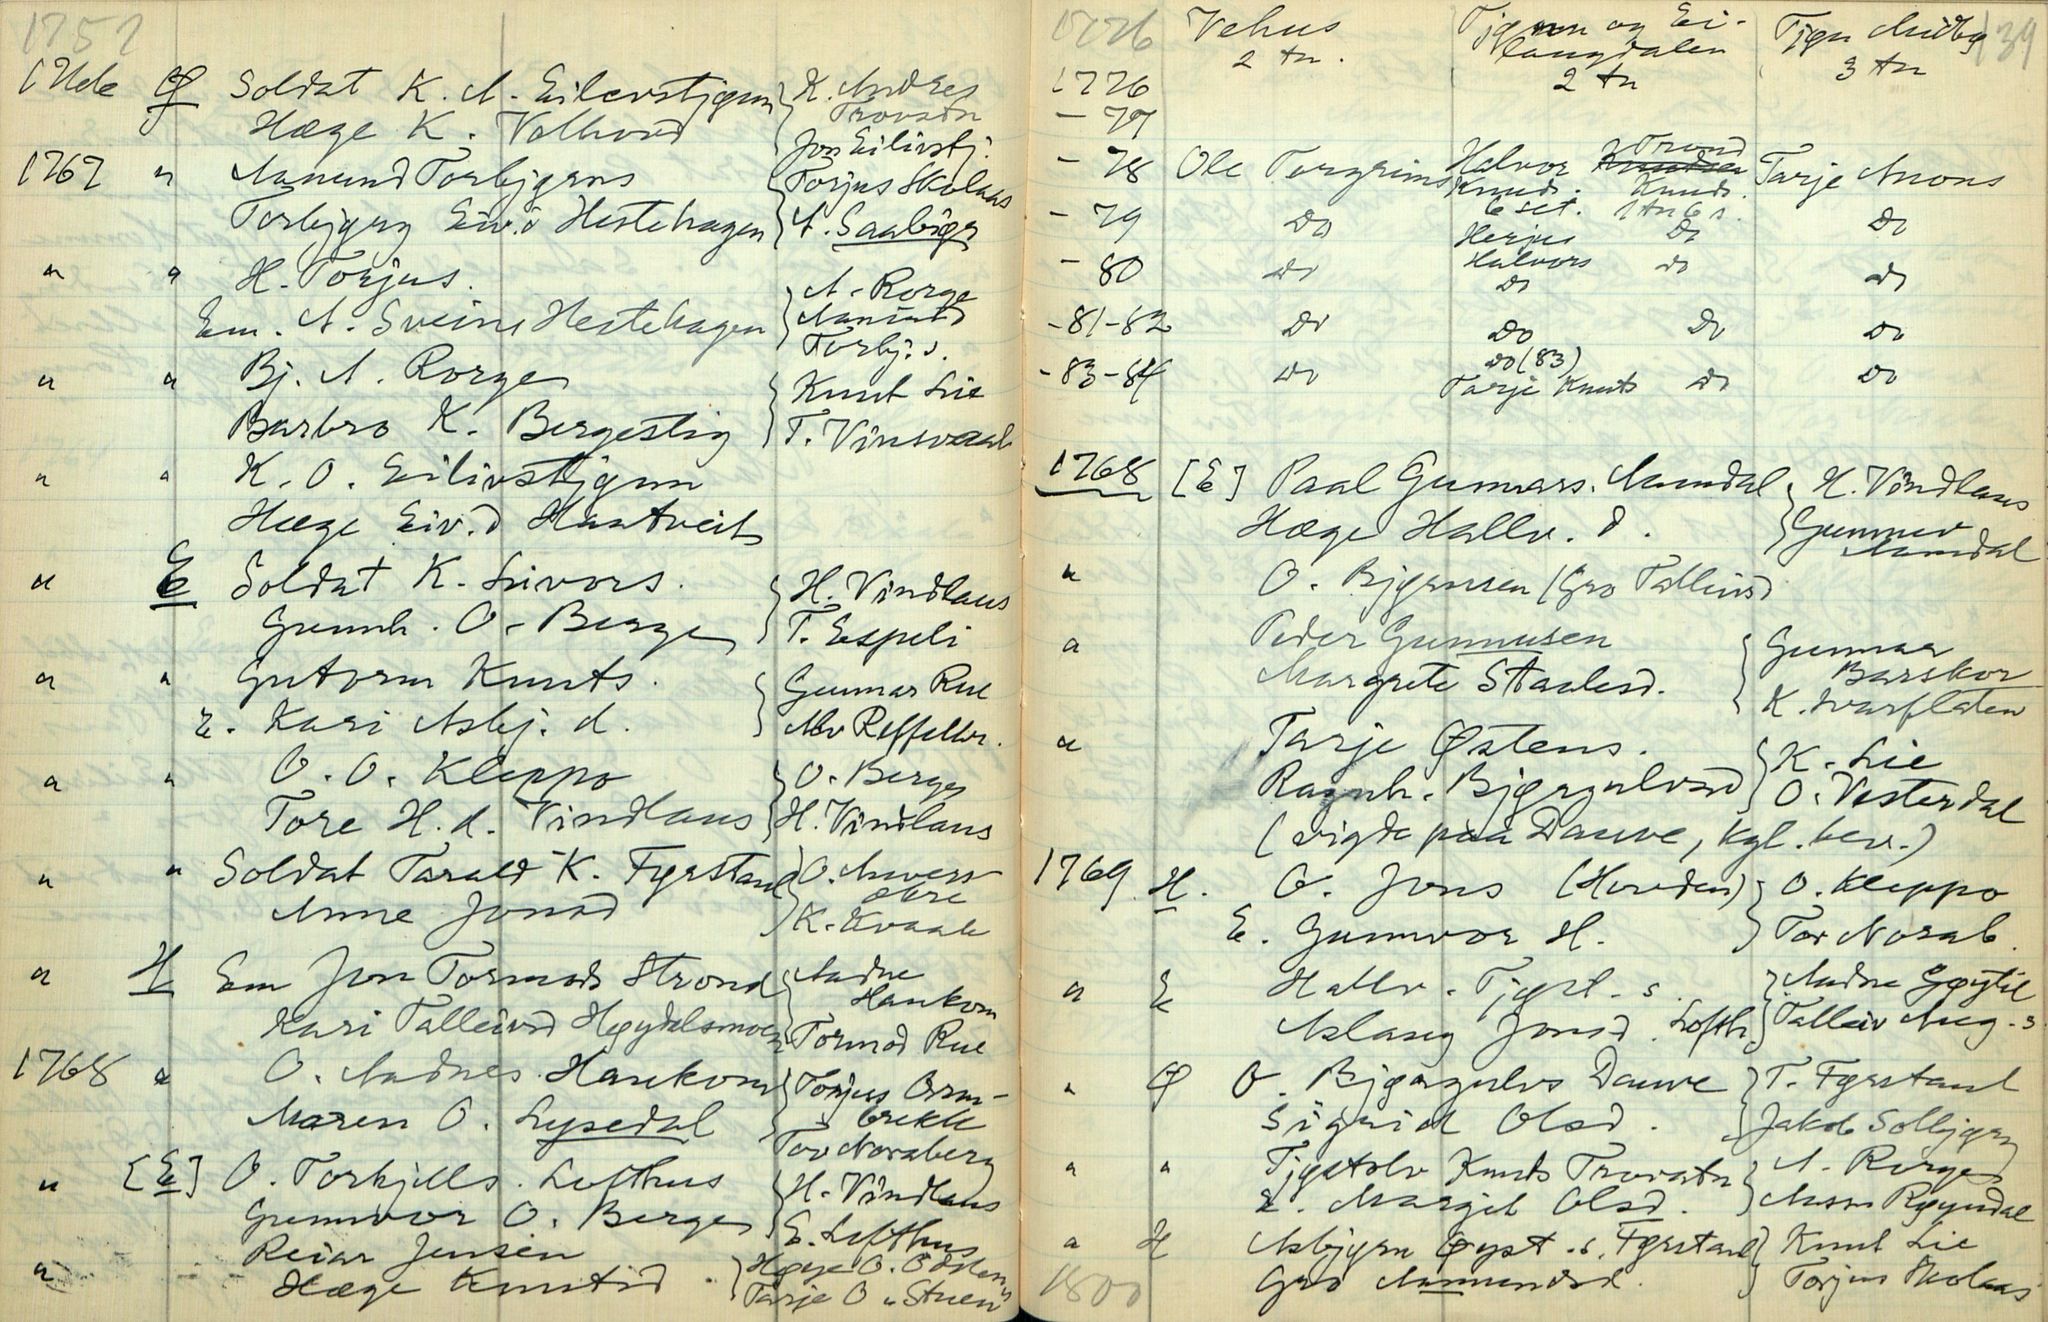 1757
Ø Soldat K. A. Eilevstjønn } K. Andres
Hæge K. Valhovd Trovatn
Jon Eilivstj.
1767 " Aamund Torbjørns } Torjus Skolaas
Torbjørg Eiv.d Hestehagen A. Saabige
" " H. Torjus.
Em. A. Sveins Hestehagen } A. Rorge
Aamund
Torbj. s.
" " Bj. A. Rorge } Knut Lie
Barbro K. Bergestig T. Vinsvaal
" " K. O. Eilivstjønn
Hæge Eiv.d Haatveit
" E Soldat K. Livors. } H. Vindlaus
Gunnh. O. Berge T. Espeli
" " Gutorm Knuts. } Gunnar Rue
E. Kari Asbj. d. Alv
" " O. O. Kleppo } O. Berge
Tore H. d. Vindlaus H. Vindlaus
" " Soldat Tarald K. Førstaul } O.
Anne Jonsd K. Kvaale
" H Em Jon Tormods Strond } Aadne
Haukom
Kari Talleivsd Høydalsmoen Tormod Rue
1768 " O. Aadnes. Haukom } Torjus Orm-
brekk
Maren O. Lysedal Tov Noraberg
" [E] O. Torkjells. Lofthus } H. Vindlaus
Gunnvor O. Berge E. Lofthus
" Reiar Jensen
Hæge Knutsd. } Høye O.
Tarje O.
1776 Vehus Tjønn og Ei- Tjøn Midbø 139
langdalen
2 tn. 2 tn 3 tn
1776
- 77
- 78 Ole Torgrims Halvor Trond Tarje Arons
Knuds. Knuds.
6 set. 1 tn 6 s.
- 79 Do Herjus Do Do
Halvors
- 80 Do Do Do Do
- 81-82 Do Do Do Do
- 83-84 Do Do (83) Do Do
Tarje Knuts
1768 [E] Paal Gunnars. Aamdal } H. Vindlaus
Hæge Hallv. d. Gunnar
Aamdal
" O. Bjørnsen (Gro Tallivsd
" Peder Gunnusen } Gunnar
Barskor
Margrete Staalesd. K. Svarflaten
" Tarje Østens. } K. Lie
Ragnh. Bjørgulvsd O. Vesterdal
(vigde paa Dauve, kgl. bev.)
1769 H. O. Jons (Hovden) } O. Kleppo
E. Gunnvor H. Tov Norab.
" E Hallv. Tjøst. s. } Aadne Gøytil
Aslaug Jonsd. Lofth. Talleiv Aug. s.
" Ø O. Bjørgulvs Dauve } T. Førstaul
Sigrid Olsd. Jakob Solbjørg
" " Tjøstolv Knuts Trovatn } A. Rorge
E. Margit Olsd. Røyndal
" H Asbjørn Øyst. s. Førstaul } Knut Lie
Gro Aamundsd. Torjus Skolaas
1800